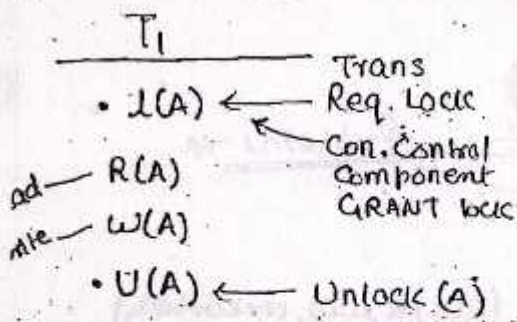 T1
Trans
• l(A) ← Req. Lock
Con. Control
Component
GRANT lock
R(A)
W(A)
• U(A) ← Unlock (A)